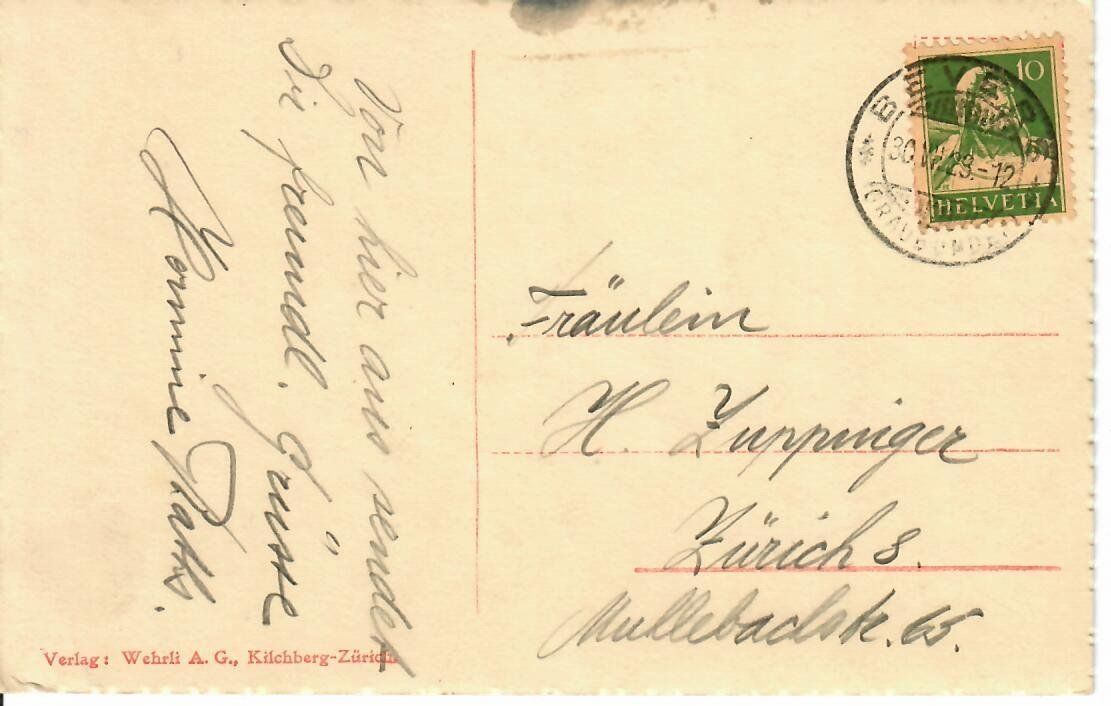 Von hier aus sendet
Die freundl. Grüsse
Hermine Raths.
10
HELVETIA
BEVERS
30.VII.23.-12
(GRAUBÜNDEN)
Fräulein
H. Zuppinger
Zürich 8.
Mullebachstr. 65.
Verlag: Wehrli A. G., Kilchberg-Zürich